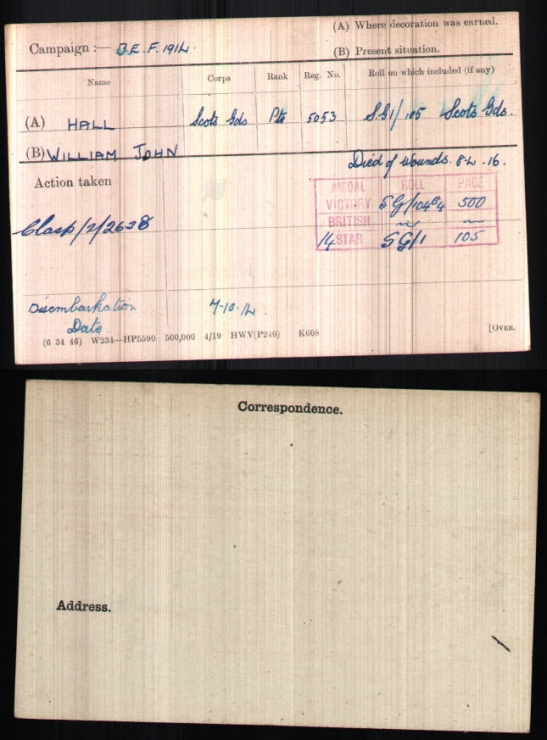 (A) Where decoration was earned.
Campaign :— B.E.F. 1914
(B) Present situation.
Name Corps Rank Reg. No. Roll on which included (if any)
(A) HALL Scots Gds Pte 5053 SG1/105 Scots Gds.
(B) WILLIAM JOHN
Died of Wounds. 8-4-16.
Action taken
MEDAL ROLL PAGE
VICTORY SG/104B4 500
Clasp/2/2638
BRITISH ~ ~
14 STAR SG/1 105
Disembarkation 7-10-14
Date.
(6 34 46) W234—HP5590 500,000 4/19 HWV(P240) K608
[OVER.
Correspondence.
Address.